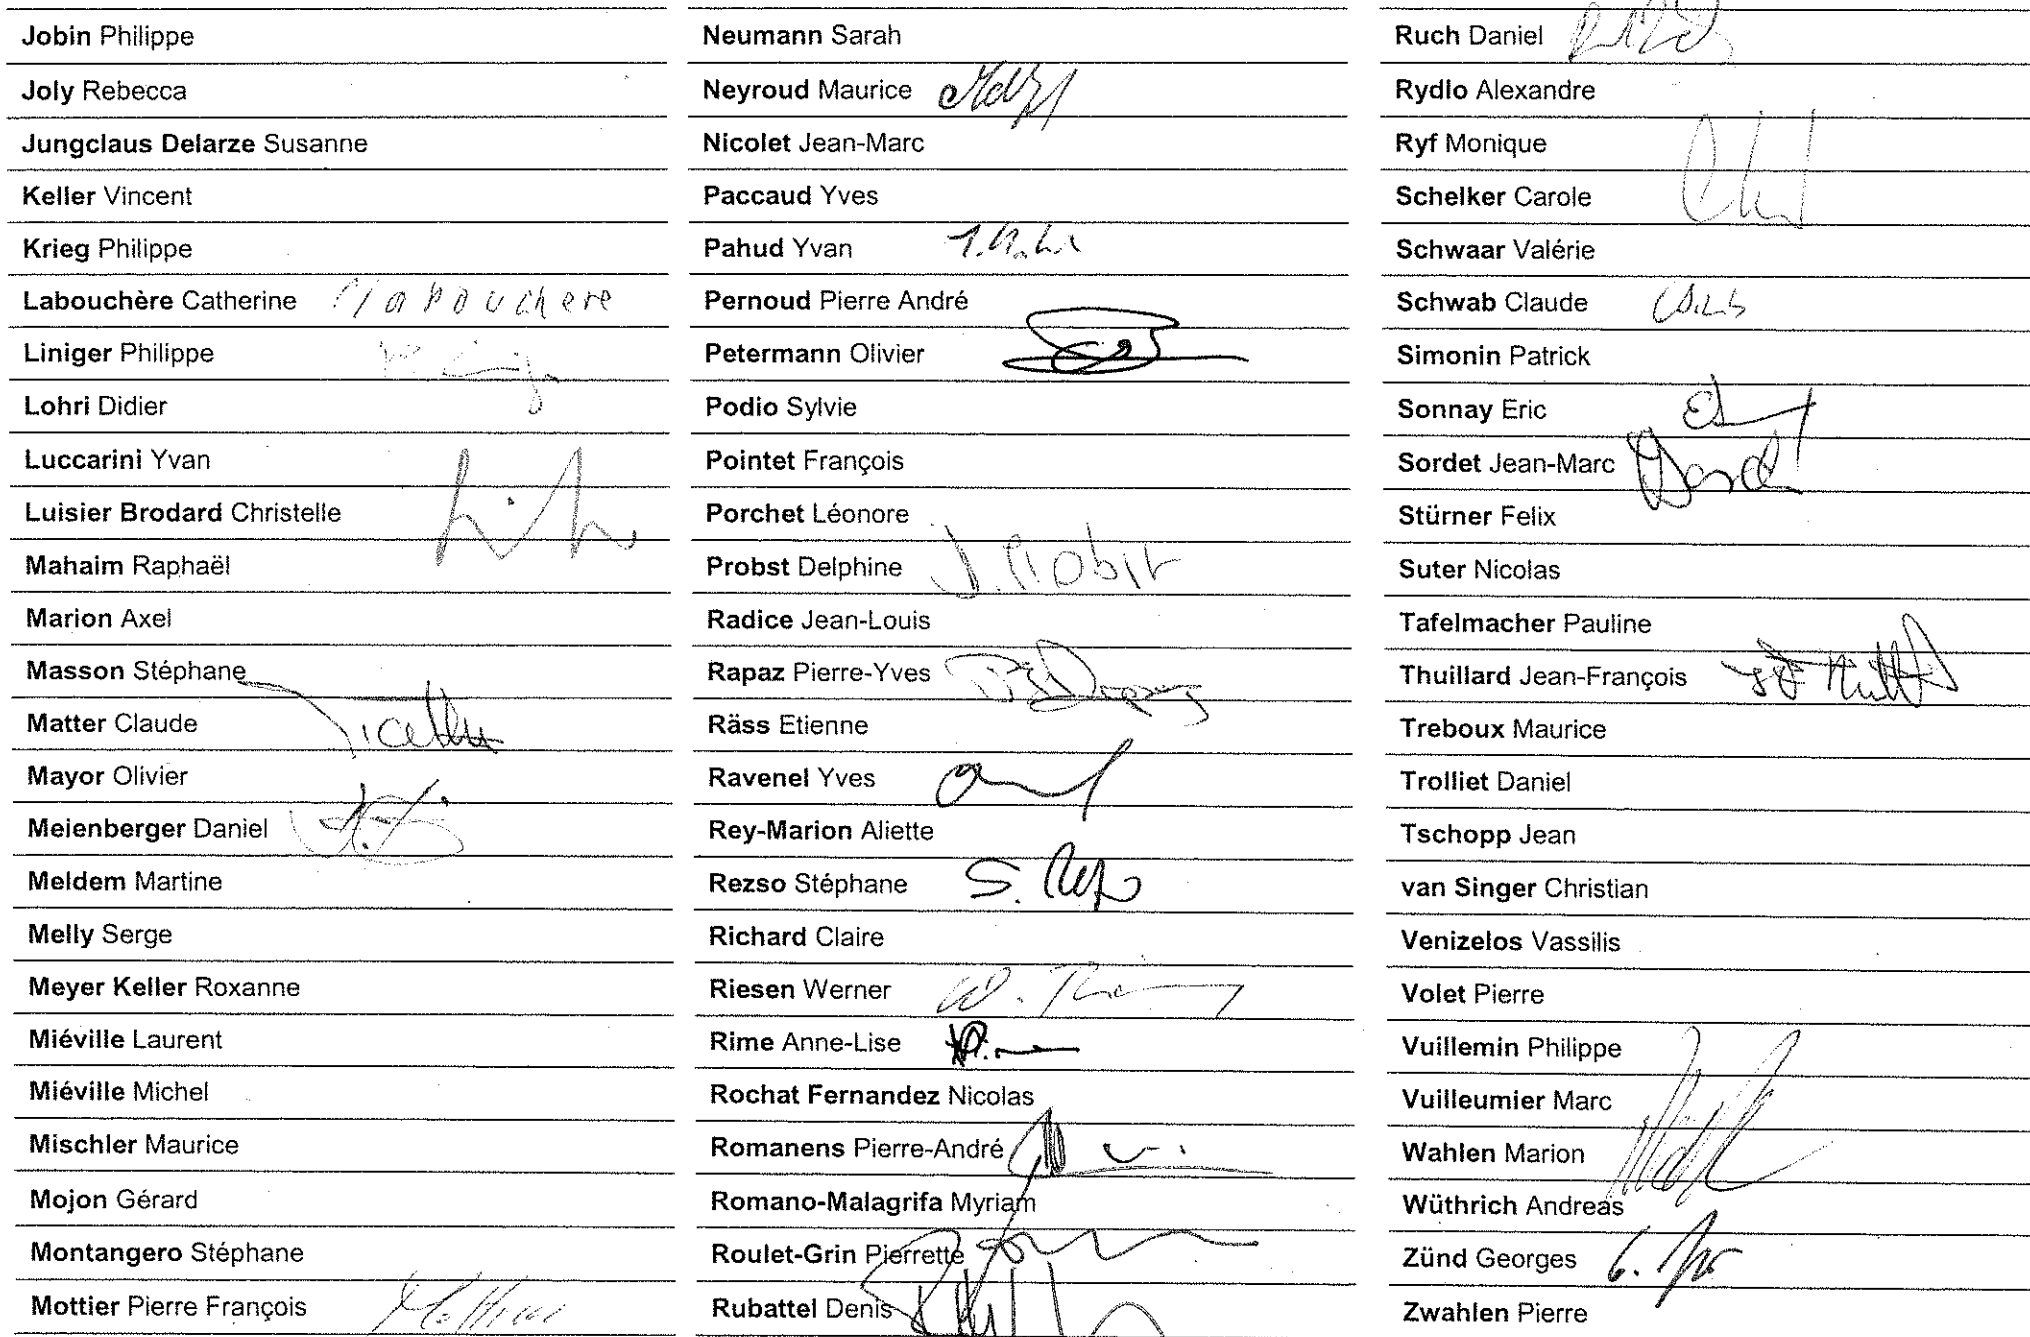 Jobin Philippe
Joly Rebecca
Jungclaus Delarze Susanne
Keller Vincent
Krieg Philippe
Labouchère Catherine labouchere
Liniger Philippe
Lohri Didier
Luccarini Yvan
Luisier Brodard Christelle
Mahaim Raphaël
Marion Axel
Masson Stéphane
Matter Claude
Mayor Olivier
Meienberger Daniel
Meldem Martine
Melly Serge
Meyer Keller Roxanne
Miéville Laurent
Miéville Michel
Mischler Maurice
Mojon Gérard
Montangero Stéphane
Mottier Pierre François
Neumann Sarah
Neyroud Maurice
Nicolet Jean-Marc
Paccaud Yves
Pahud Yvan
Pernoud Pierre André
Petermann Olivier
Podio Sylvie
Pointet François
Porchet Léonore
Probst Delphine
Radice Jean-Louis
Rapaz Pierre-Yves
Räss Etienne
Ravenel Yves
Rey-Marion Aliette
Rezso Stéphane
Richard Claire
Riesen Werner
Rime Anne-Lise
Rochat Fernandez Nicolas
Romanens Pierre-André
Romano-Malagrifa Myriam
Roulet-Grin Pierrette
Rubattel Denis
Ruch Daniel
Rydlo Alexandre
Ryf Monique
Schelker Carole
Schwaar Valérie
Schwab Claude
Simonin Patrick
Sonnay Eric
Sordet Jean-Marc
Stürner Felix
Suter Nicolas
Tafelmacher Pauline
Thuillard Jean-François
Treboux Maurice
Trolliet Daniel
Tschopp Jean
van Singer Christian
Venizelos Vassilis
Volet Pierre
Vuillemin Philippe
Vuilleumier Marc
Wahlen Marion
Wüthrich Andreas
Zünd Georges
Zwahlen Pierre